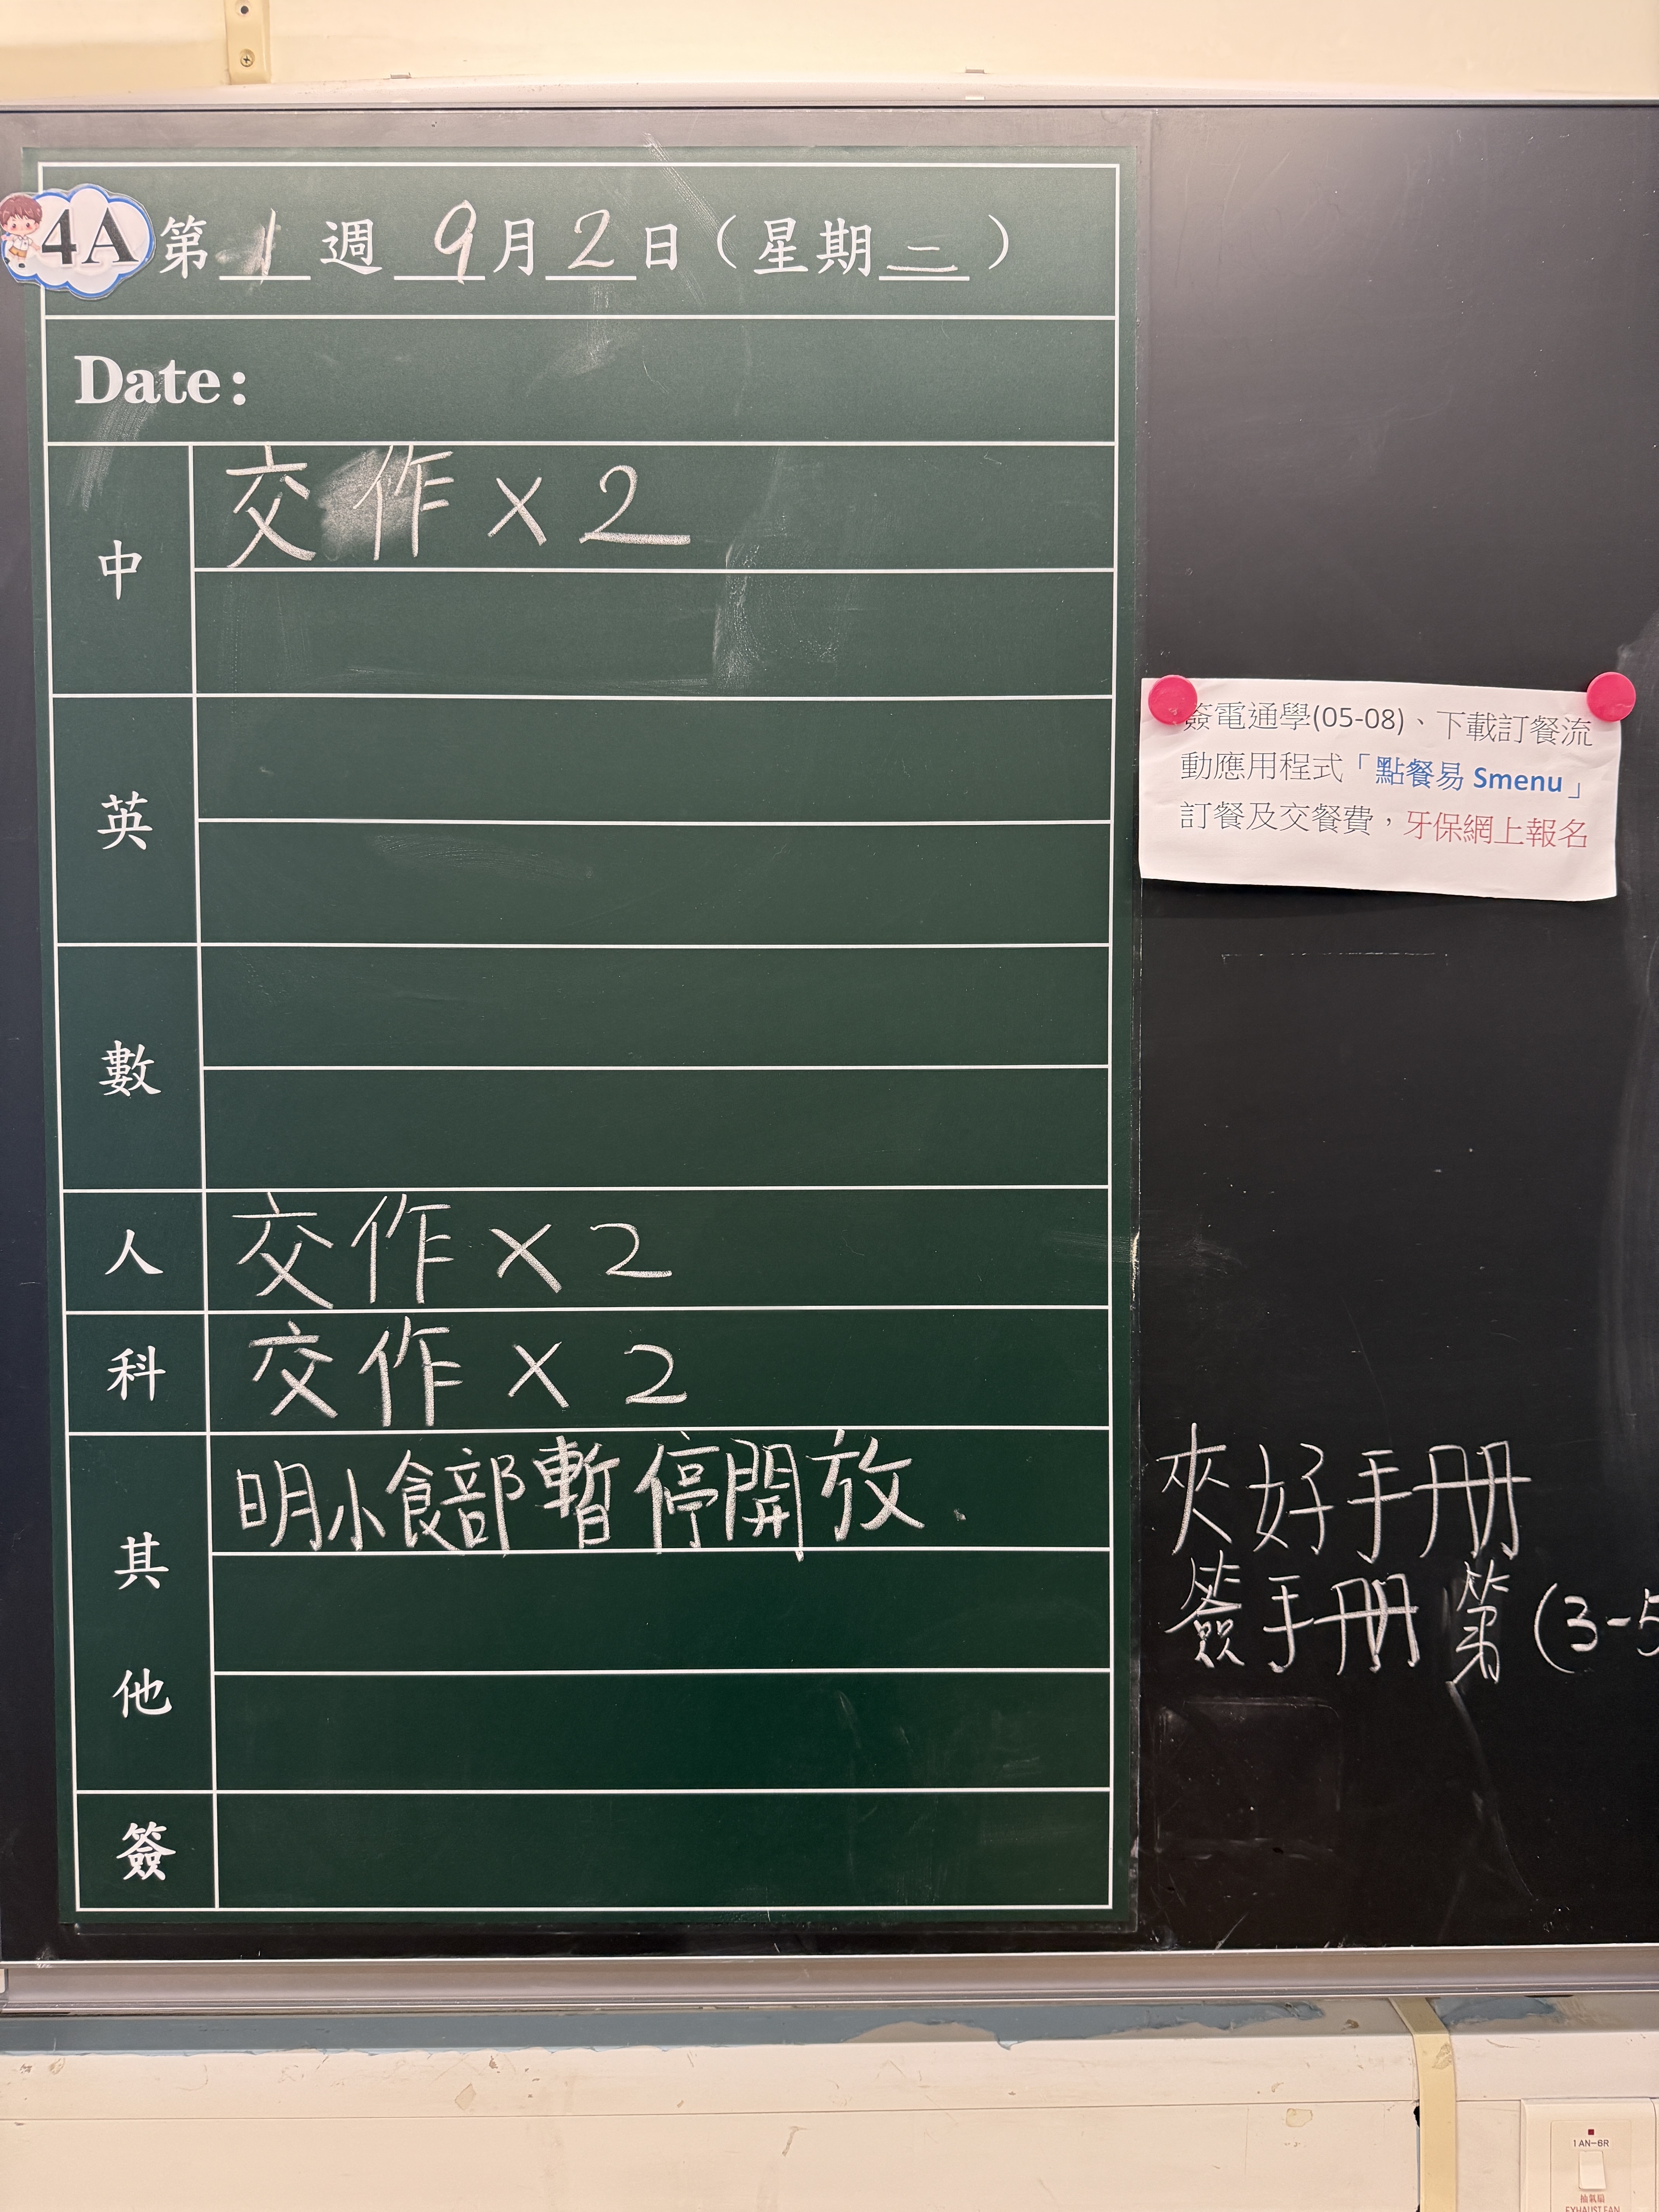 4A 第 1 週 9 月 2 日（星期 二 ）
Date:
中 交作 × 2
英
數
人 交作 × 2
科 交作 × 2
其他 明小食部暫停開放.
簽
簽電通學(05-08)、下載訂餐流
動應用程式「點餐易 Smenu」
訂餐及交餐費，牙保網上報名
夾好手冊
簽手冊 第 (3-5
1AN-6R
抽氣扇
EXHAUST FAN